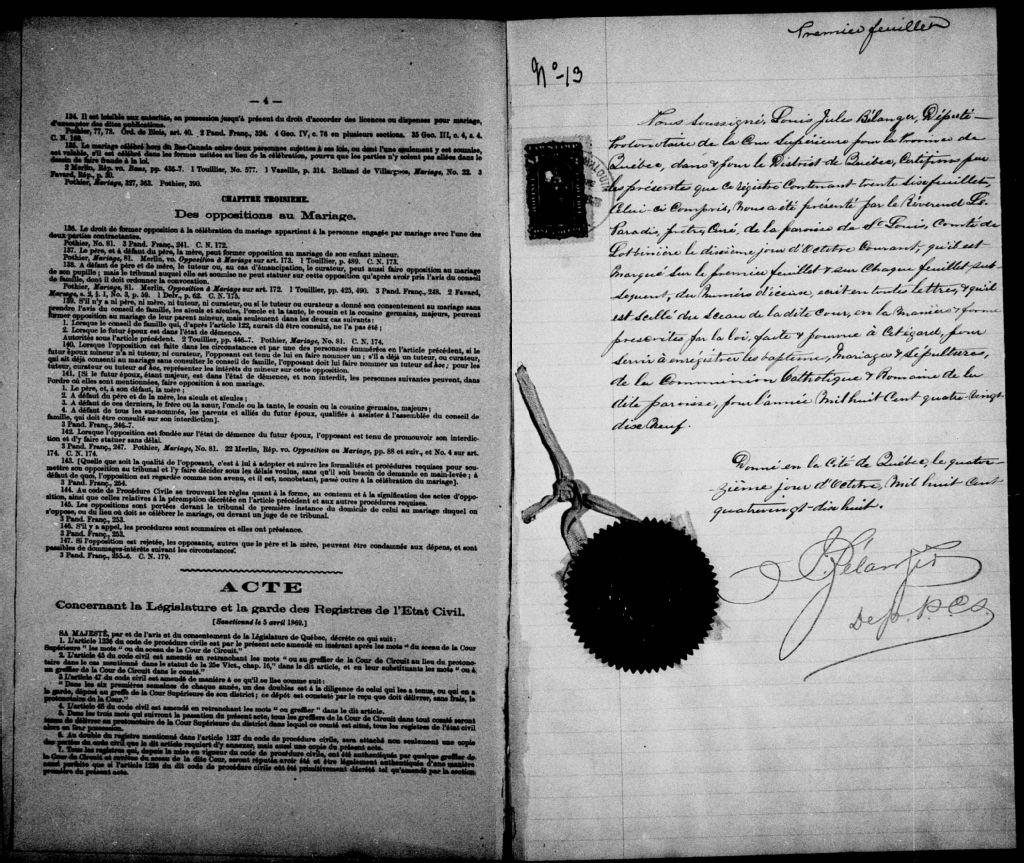 — 4 —
134. Il est loisible aux autorités, en possession jusqu'à présent du droit d'accorder des licences ou dispenses pour mariage,
d'exempter des dites publications.
Pothier, 77, 78. Ord. de Blois, art. 40. 2 Pand. Franç., 324. 4 Geo. IV, c. 76 en plusieurs sections. 35 Geo. III, c. 4, s. 4.
C. N. 169.
135. Le mariage célébré hors du Bas-Canada entre deux personnes sujettes à ses lois, ou dont l'une seulement y est soumise,
est valable, s'il est célébré dans les formes usitées au lieu de la célébration, pourvu que les parties n'y soient pas allées dans le
dessin de faire fraude à la loi.
2 Merlin, Rép. vo. Bans, pp. 436-7. 1 Touillier, No. 577. 1 Vazeille, p. 314. Rolland de Villargues, Mariage, No. 22. 3
Favard, Rép., p. 30.
Pothier, Mariage, 327, 363. Pothier, 390.
CHAPITRE TROISIEME.
Des oppositions au Mariage.
136. Le droit de former opposition à la célébration du mariage appartient à la personne engagée par mariage avec l'une des
deux parties contractantes.
Pothier, No. 81. 3 Pand. Franç., 241. C. N. 172.
137. Le père, et à défaut du père, la mère, peut former opposition au mariage de son enfant mineur.
Pothier, Mariage, 81. Merlin, vo. Opposition à Mariage sur art. 173. 1 Touillier, p. 489. C. N. 173.
138. A défaut de père et de mère, le tuteur ou, au cas d'émancipation, le curateur, peut aussi faire opposition au mariage
de son pupille; mais le tribunal auquel elle est soumise ne peut statuer sur cette opposition qu'après avoir pris l'avis du conseil
de famille, dont il doit ordonner la convocation.
Pothier, Mariage, 81. Merlin, Opposition à Mariage sur art. 172. 1 Touillier, pp. 425, 490. 3 Pand. Franç., 248. 2 Favard,
Mariage, s. 2, § 1, No. 3, p. 59. 1 Delv., p. 62. C. N. 175.
139. S'il n'y a ni père, ni mère, ni tuteur, ni curateur, ou si le tuteur ou curateur a donné son consentement au mariage sans
prendre l'avis du conseil de famille, les aïeuls et aïeules, l'oncle et la tante, le cousin et la cousine germains, majeurs, peuvent
former opposition au mariage de leur parent mineur, mais seulement dans les deux cas suivants:
1. Lorsque le conseil de famille qui, d'après l'article 122, aurait dû être consulté, ne l'a pas été;
2. Lorsque le futur époux est dans l'état de démence.
Autorités sous l'article précédent. 2 Touillier, pp. 446-7. Pothier, Mariage, No. 81. C. N. 174.
140. Lorsque l'opposition est faite dans les circonstances et par une des personnes énumérées en l'article précédent, si le
futur époux mineur n'a ni tuteur, ni curateur, l'opposant est tenu de lui en faire nommer un; s'il a déjà un tuteur, ou curateur,
qui ait déjà consenti au mariage sans consulter le conseil de famille, l'opposant doit lui faire nommer un tuteur ad hoc; pour les
tuteur, curateur ou tuteur ad hoc, représenter les intérêts du mineur sur cette opposition.
141. [Si le futur époux, étant majeur, est dans l'état de démence, et non interdit, les personnes suivantes peuvent, dans
l'ordre où elles sont mentionnées, faire opposition à son mariage.
1. Le père, et, à son défaut, la mère;
2. A défaut du père et de la mère, les aïeuls et aïeules;
3. A défaut de ces derniers, le frère ou la sœur, l'oncle ou la tante, le cousin ou la cousine germains, majeurs;
4. A défaut de tous les sus-nommés, les parents et alliés du futur époux, qualifiés à assister à l'assemblée du conseil de
famille, qui doit être consulté sur son interdiction].
3 Pand. Franç., 246-7.
142. Lorsque l'opposition est fondée sur l'état de démence du futur époux, l'opposant est tenu de promouvoir son interdic-
tion et d'y faire statuer sans délai.
3 Pand. Franç., 247. Pothier, Mariage, No. 81. 22 Merlin, Rép. vo. Opposition au Mariage, pp. 88 et suiv., et No. 4 sur art.
174. C. N. 174.
143. [Quelle que soit la qualité de l'opposant, c'est à lui à adopter et suivre les formalités et procédures requises pour sou-
mettre son opposition au tribunal et l'y faire décider sous les délais voulus, sans qu'il soit besoin de demande en main-levée; à
défaut de quoi, l'opposition est regardée comme non avenu, et il est, nonobstant, passé outre à la célébration du mariage].
3 Pand. Franç., 254.
144. Au code de Procédure Civile se trouvent les règles quant à la forme, au contenu et à la signification des actes d'oppo-
sition, ainsi que celles relatives à la péremption décrétée en l'article précédent et aux autres procédures requises.
145. Les oppositions sont portées devant le tribunal de première instance du domicile de celui au mariage duquel on
s'oppose, ou du lieu où doit se célébrer le mariage, ou devant un juge de ce tribunal.
3 Pand. Franç., 253.
146. S'il y a appel, les procédures sont sommaires et elles ont préséance.
3 Pand. Franç., 253.
147. Si l'opposition est rejetée, les opposants, autres que le père et la mère, peuvent être condamnés aux dépens, et sont
passibles de dommages-intérêts suivant les circonstances.
3 Pand. Franç., 255-6. C. N. 179.
ACTE
Concernant la Législature et la garde des Registres de l'Etat Civil.
[Sanctionné le 5 avril 1869.]
SA MAJESTÉ, par et de l'avis et du consentement de la Législature de Québec, décrète ce qui suit:
1. L'article 1236 du code de procédure civile est par le présent acte amendé en insérant après les mots "du sceau de la Cour
Supérieure" les mots "ou du sceau de la Cour de Circuit."
2. L'article 45 du code civil est amendé en retranchant les mots "ou au greffier de la Cour de Circuit au lieu du protono-
taire dans le cas mentionné dans le statut de la 25e Vict., chap. 16," dans le dit article, et en leur substituant les mots "ou à
un greffier de la Cour de Circuit dans le comté."
3. L'article 47 du code civil est amendé de manière à ce qu'il se lise comme suit:
"Dans les six premières semaines de chaque année, un des doubles est à la diligence de celui qui les a tenus, ou qui en a
la garde, déposé au greffe de la Cour Supérieure de son district; ce dépôt est constaté par le reçu que doit délivrer, sans frais, le
protonotaire de la Cour."
4. L'article 48 du code civil est amendé en retranchant les mots "ou greffier" dans le dit article.
5. Dans les trois mois qui suivront la passation du présent acte, tous les greffiers de la Cour de Circuit dans tout comté seront
tenus de délivrer au protonotaire de la Cour Supérieure du district dans lequel ce comté est situé, tous les registres de l'état civil
alors en leur possession.
6. Au double du registre mentionné dans l'article 1237 du code de procédure civile, sera attaché non seulement une copie
des parties du code civil que le dit article requiert d'y annexer, mais aussi une copie du présent acte.
7. Tous les registres qui, depuis la mise en vigueur du code de procédure civile, ont été authentiqués par quelque greffier de
la Cour de Circuit et revêtus du sceau de la dite Cour, seront réputés avoir été et être légalement authentiqués d'une manière
aussi parfaite que si l'article 1236 du dit code de procédure civile eût été primitivement décrété tel qu'amendé par la section
première du présent acte.
Premier feuillet
No-13
Nous soussigné, Louis Jules Bélanger, Député-
Protonotaire de la Cour Supérieure pour la Province de
Québec, dans & pour le District de Québec, Certifions par
les présentes que ce régistre Contenant trente six feuillets,
Celui-ci Compris, Nous a été présenté par le Révérend Ls.
Paradis, prêtre, Curé, de la paroisse de St Louis, Comté de
Lotbinière le dixième jour d'Octobre Courant, qu'il est
Marqué sur le premier feuillet & sur Chaque feuillet sub-
séquent, du Numéro d'icelui, écrit en toutes lettres, & qu'il
est scellé du Sceau de la dite Cour, en la Manière & forme
prescrites par la loi, faite & pourvue à Cet égard, pour
servir à enrégistrer les baptêmes, Mariages & Sépultures,
de la Communion Catholique & Romaine de la
dite paroisse, pour l'année Mil huit Cent quatre vingt
dix Neuf.
Donné en la Cité de Québec, le quator-
zième jour d'Octobre, Mil huit Cent
quatrevingt-dix huit.
J. Bélanger
Dep. P.C.S.